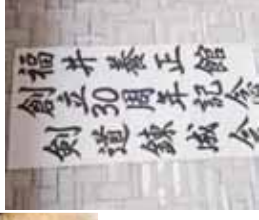 福井養正館
創立30周年記念
剣道錬成会